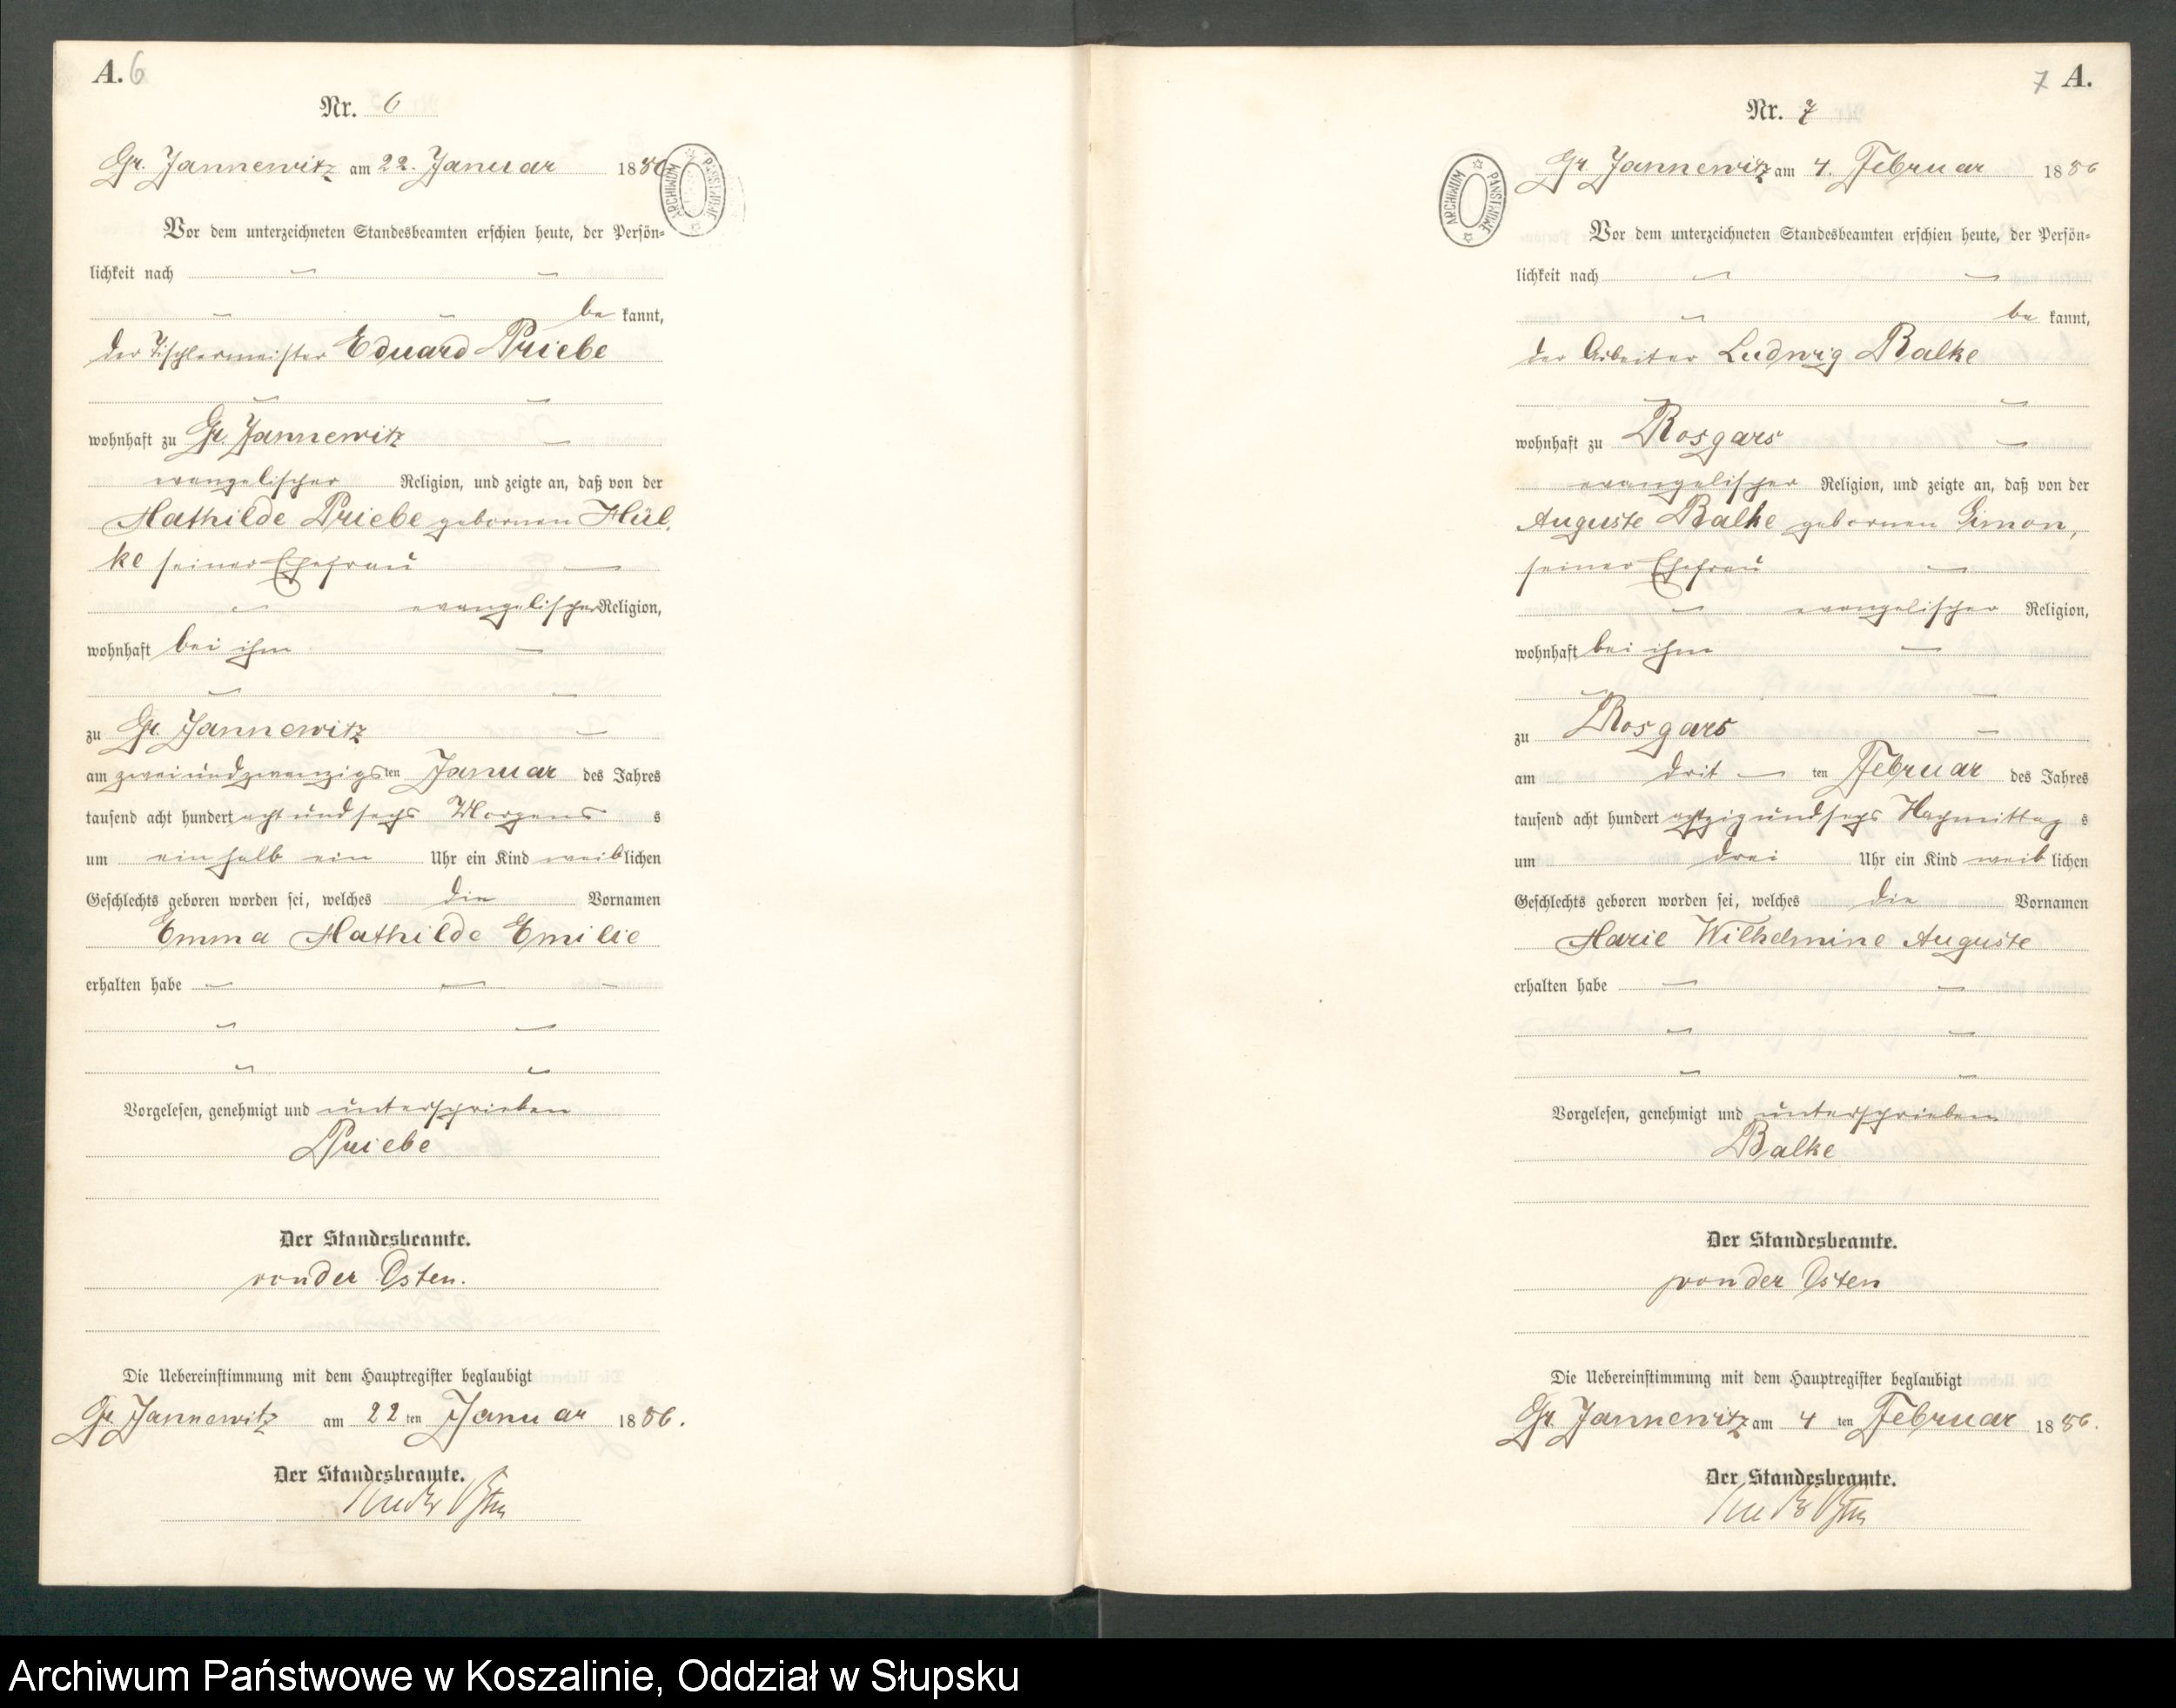 A. 6
Nr. 6
Gr. Jannewitz am 22. Januar 1886
ARCHIWUM PAŃSTWOWE
Vor dem unterzeichneten Standesbeamten erschien heute, der Persön-
lichkeit nach
be kannt,
der Tischlermeister Eduard Priebe
wohnhaft zu Gr. Jannewitz
evangelischer Religion, und zeigte an, daß von der
Mathilde Priebe gebornen Hül
ke seiner Ehefrau
evangelischer Religion,
wohnhaft bei ihm
zu Gr. Jannewitz
am zweiundzwanzigsten Januar des Jahres
tausend acht hundert acht und sechs Morgens s
um ein halb ein Uhr ein Kind weiblichen
Geschlechts geboren worden sei, welches die Vornamen
Emma Mathilde Emilie
erhalten habe
Vorgelesen, genehmigt und unterschrieben
Priebe
Der Standesbeamte.
von der Osten.
Die Uebereinstimmung mit dem Hauptregister beglaubigt
Gr. Jannewitz am 22 ten Januar 1886.
Der Standesbeamte.
von der Osten
7 A.
Nr. 7
Gr. Jannewitz am 4. Februar 1886
ARCHIWUM PAŃSTWOWE
Vor dem unterzeichneten Standesbeamten erschien heute, der Persön-
lichkeit nach
be kannt,
der Arbeiter Ludwig Balke
wohnhaft zu Rosgars
evangelischer Religion, und zeigte an, daß von der
Auguste Balke gebornen Simon,
seiner Ehefrau
evangelischer Religion,
wohnhaft bei ihm
zu Rosgars
am drit ten Februar des Jahres
tausend acht hundert achtzig und sechs Nachmittag s
um drei Uhr ein Kind weib lichen
Geschlechts geboren worden sei, welches die Vornamen
Marie Wilhelmine Auguste
erhalten habe
Vorgelesen, genehmigt und unterschrieben
Balke
Der Standesbeamte.
von der Osten
Die Uebereinstimmung mit dem Hauptregister beglaubigt
Gr. Jannewitz am 4 ten Februar 1886.
Der Standesbeamte.
von der Osten
Archiwum Państwowe w Koszalinie, Oddział w Słupsku